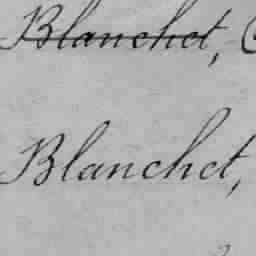 Blanchet,
Blanchet,